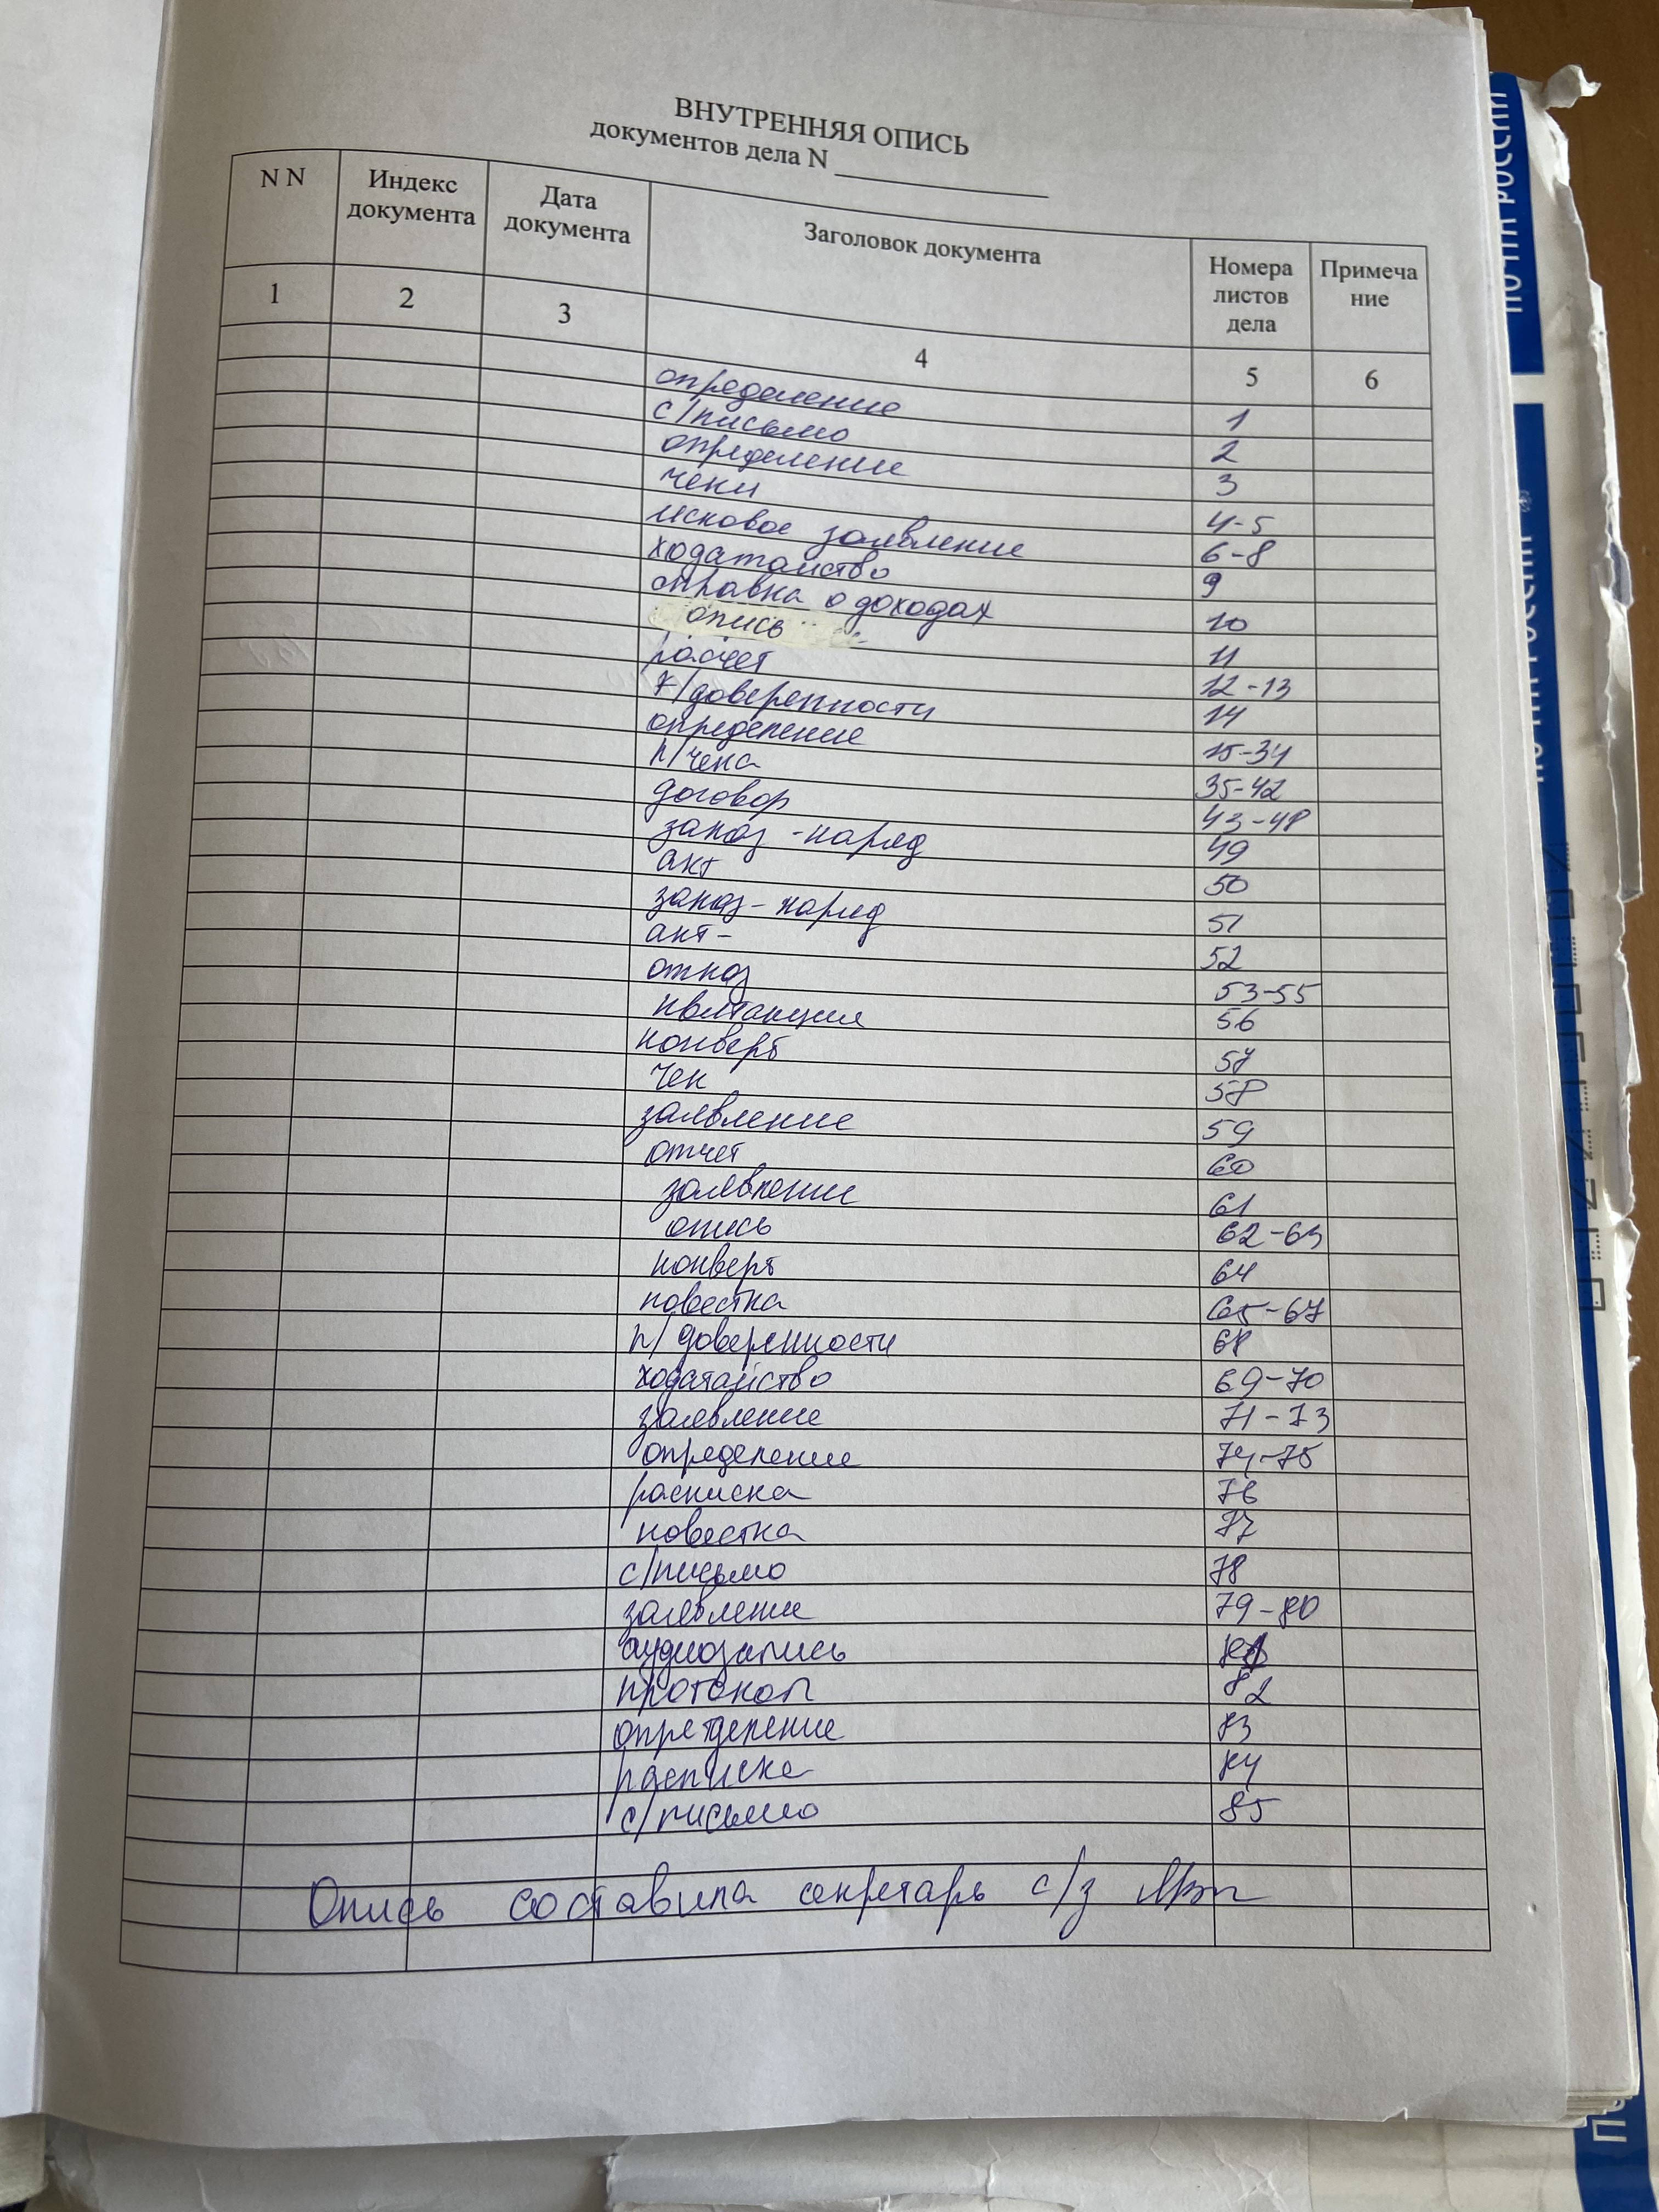 ВНУТРЕННЯЯ ОПИСЬ
документов дела N
N N Индекс документа Дата документа Заголовок документа Номера листов дела Примеча ние
1 2 3 4 5 6
определение 1
с/письмо 2
определение 3
чеки 4-5
исковое заявление 6-8
ходатайство 9
справка о доходах 10
опись 11
расчет 12-13
/доверенности 14
определение 15-34
к/чека 35-42
договор 43-48
заказ-наряд 49
акт 50
заказ-наряд 51
акт- 52
отказ 53-55
квитанция 56
конверт 57
чек 58
заявление 59
отчет 60
заявление 61
опись 62-63
конверт 64
повестка 65-67
к/доверенности 68
ходатайство 69-70
заявление 71-73
определение 74-75
расписка 76
повестка 77
с/письмо 78
заявление 79-80
аудиозапись 81
протокол 82
определение 83
расписка 84
с/письмо 85
Опись составила секретарь с/з
ПОЧТА РОССИИ
ПОЧТА РОССИИ